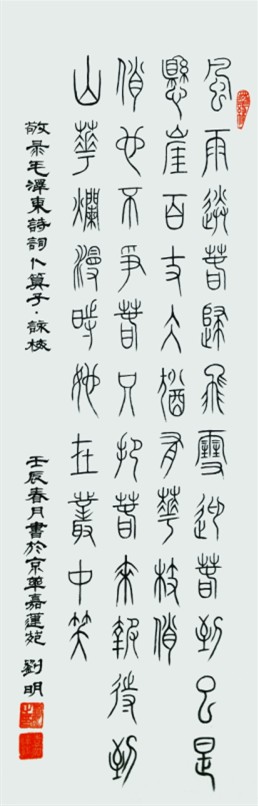 風雨送春歸飛雪迎春到已是
懸崖百丈冰猶有華枝俏
俏也不爭春只把春來報待到
山華爛漫時她在叢中笑
敬录毛澤東詩詞卜算子·詠梅 壬辰春月書於京華嘉蓮苑 劉明